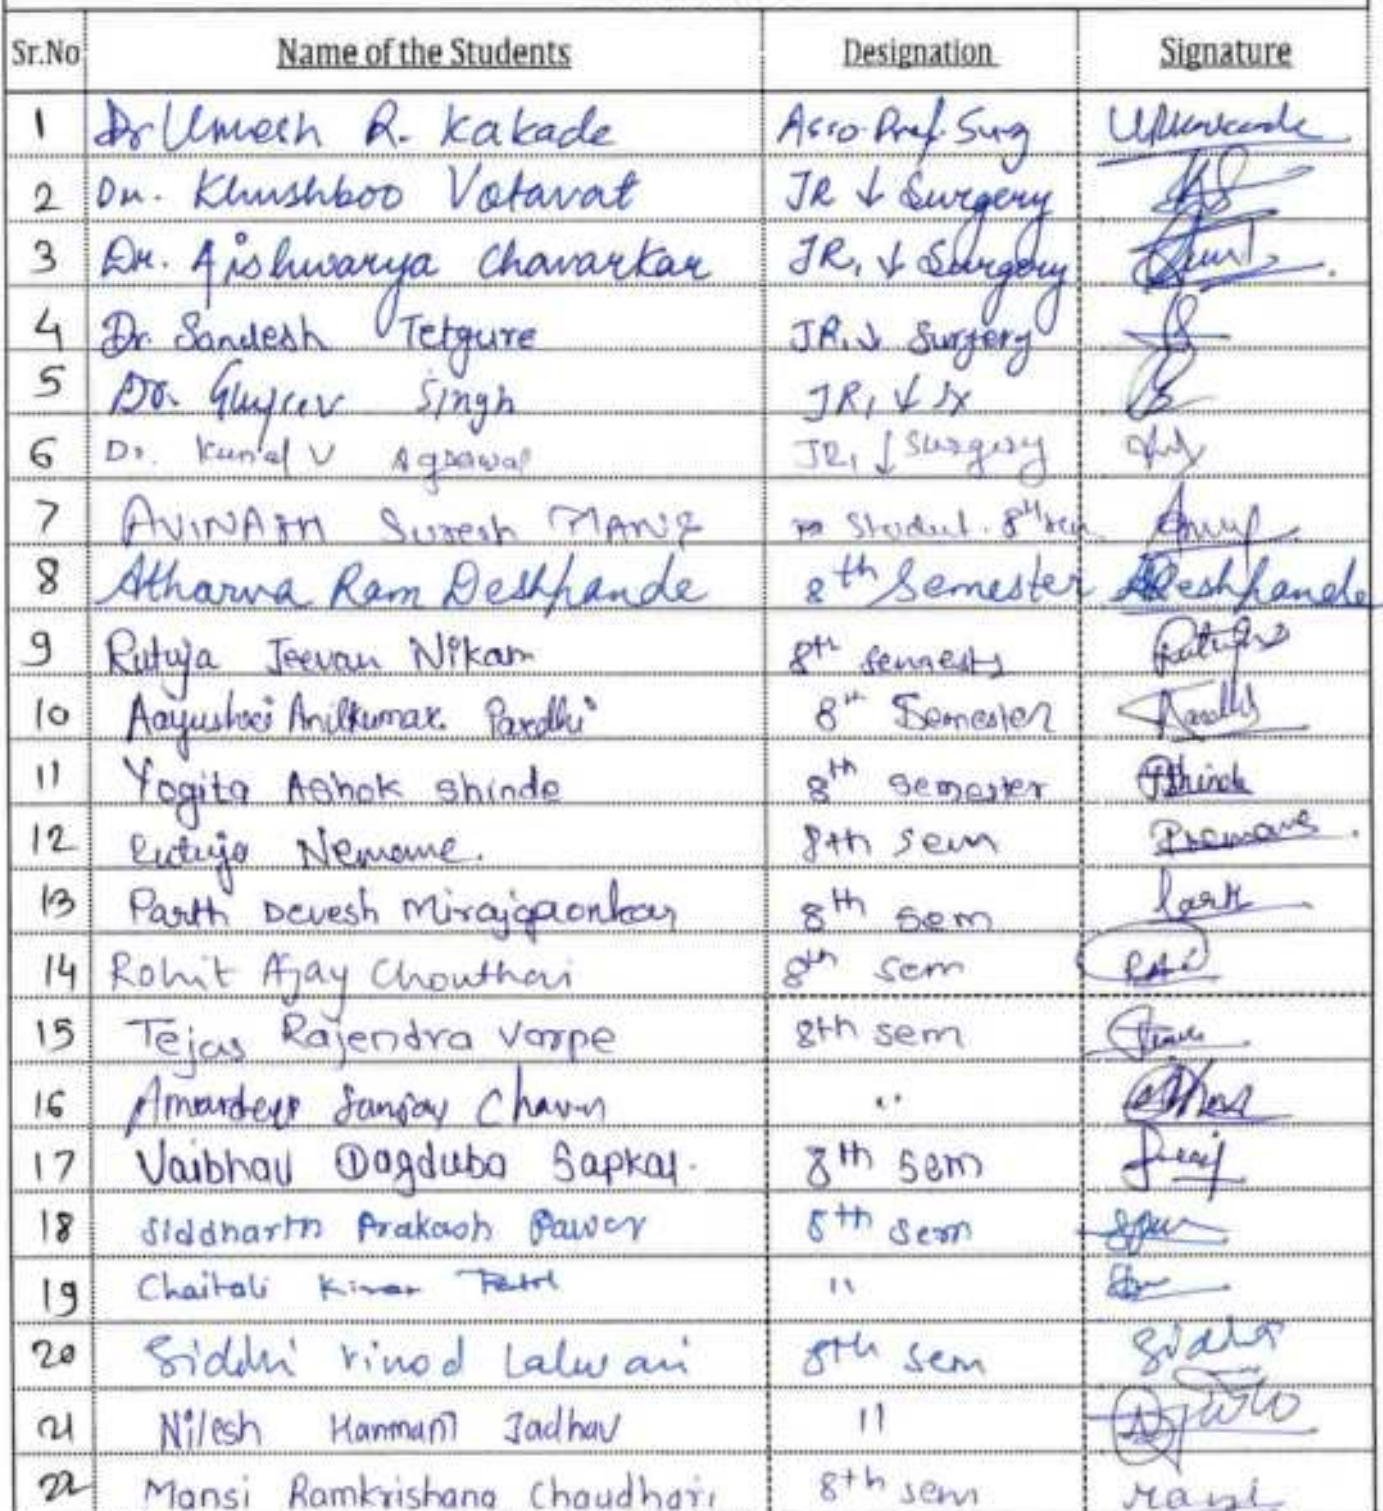 Sr.No Name of the Students Designation Signature
1 Dr Umesh R. Kakade Asso. Prof. Surg
2 Dr. Khushboo Votavat JR ↓ Surgery
3 Dr. Aishwarya Chavarkar JR1 ↓ Surgery
4 Dr. Sandesh Tetgure JR1 ↓ Surgery
5 Dr. Singh JR1 ↓ Sx
6 Dr. Kunal V Agrawal JR1 ↓ Surgery
7 AVINASH Suresh MANE Student. 8th sem
8 Atharva Ram Deshpande 8th Semester Deshpande
9 Rutuja Jeevan Nikam 8th semester Rutuja
10 Aayushree Anilkumar Pardhi 8th Semester Pardhi
11 Yogita Ashok Shinde 8th semester Shinde
12 Rutuja Nemane. 8th sem
13 Parth Devesh Mirajgaonkar 8th sem Parth
14 Rohit Ajay Chouthai 8th sem
15 Tejas Rajendra Varpe 8th sem
16 Amardeep Sanjay Chavan "
17 Vaibhav Dagduba Sapkal. 8th sem
18 Siddharth Prakash Pawar 8th sem
19 Chaitali Kiran Patil "
20 Siddhi Vinod Lalwani 8th sem Siddhi
21 Nilesh Hanmant Jadhav "
22 Mansi Ramkrishana Chaudhari 8th sem Mansi